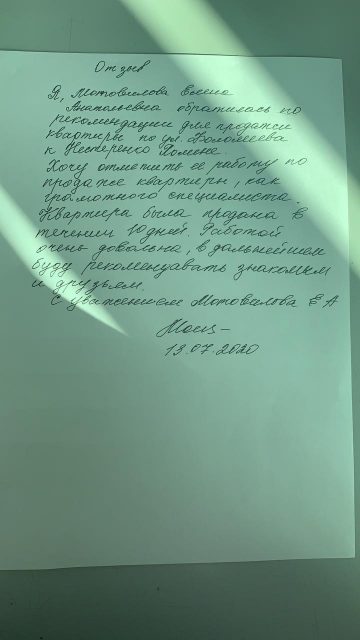 Отзыв
Я, Мотовилова Елена
Анатольевна обратилась по
рекомендации для продажи
квартиры по ул. Боломеева
к Нестеренко Полине.
Хочу отметить её работу по
продаже квартиры, как
грамотного специалиста.
Квартира была продана в
течении 10 дней. Работой
очень довольна, в дальнейшем
буду рекомендавать знакомым
и друзьям.
С уважением Мотовилова Е А
13.07.2020